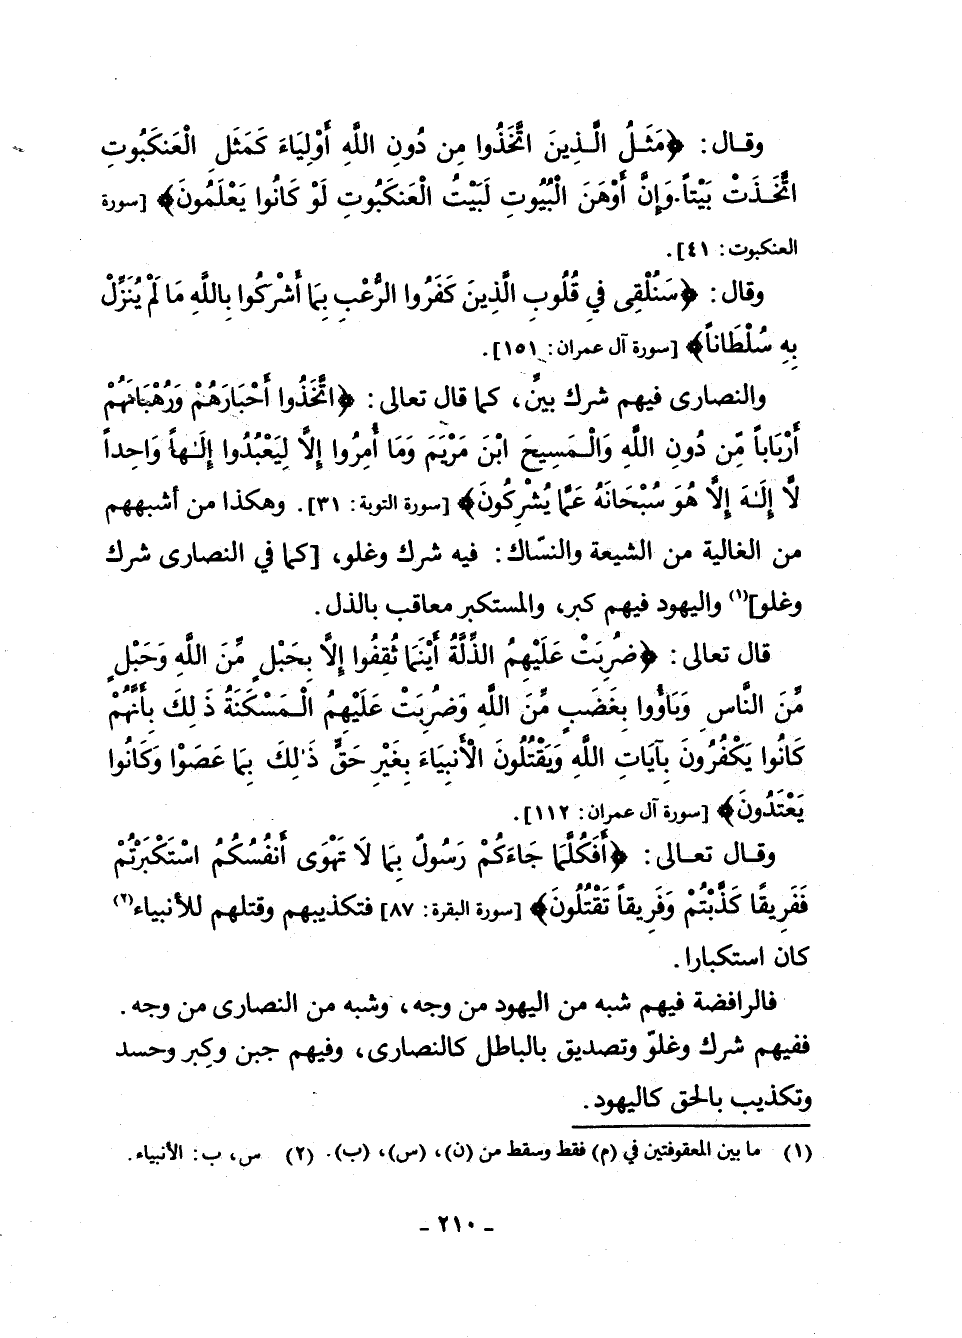 وقـال: ﴿مَثَـلُ الَّـذِينَ اتَّخَذُوا مِن دُونِ اللَّهِ أَوْلِيَاءَ كَمَثَلِ الْعَنكَبُوتِ
اتَّخَـذَتْ بَيْتاً وَإِنَّ أَوْهَنَ الْبُيُوتِ لَبَيْتُ الْعَنكَبُوتِ لَوْ كَانُوا يَعْلَمُونَ﴾ [سورة
العنكبوت: ٤١].
وقال: ﴿سَنُلْقِى فِي قُلُوبِ الَّذِينَ كَفَرُوا الرُّعْبِ بِمَا أَشْرَكُوا بِاللَّهِ مَا لَمْ يُنَزِّلْ
بِهِ سُلْطَاناً﴾ [سورة آل عمران: ١٥١].
والنصارى فيهم شرك بينِّ، كما قال تعالى: ﴿اتَّخَذُوا أَحْبَارَهُمْ وَرُهْبَانَهُمْ
أَرْبَاباً مِّن دُونِ اللَّهِ وَالْـمَسِيحَ ابْنَ مَرْيَمَ وَمَا أُمِرُوا إِلَّا لِيَعْبُدُوا إِلَـٰهاً وَاحِداً
لَّا إِلَـٰهَ إِلَّا هُوَ سُبْحَانَهُ عَمَّا يُشْرِكُونَ﴾ [سورة التوبة: ٣١]. وهكذا من أشبههم
من الغالية من الشيعة والنسّاك: فيه شرك وغلو، [كما في النصارى شرك
وغلو]⁽١⁾ واليهود فيهم كبر، والمستكبر معاقب بالذل.
قال تعالى: ﴿ضُرِبَتْ عَلَيْهِمُ الذِّلَّةُ أَيْنَمَا ثُقِفُوا إِلَّا بِحَبْلٍ مِّنَ اللَّهِ وَحَبْلٍ
مِّنَ النَّاسِ وَبَاؤُوا بِغَضَبٍ مِّنَ اللَّهِ وَضُرِبَتْ عَلَيْهِمُ الْـمَسْكَنَةُ ذَ لِكَ بِأَنَّهُمْ
كَانُوا يَكْفُرُونَ بِآيَاتِ اللَّهِ وَيَقْتُلُونَ الْأَنبِيَاءَ بِغَيْرِ حَقٍّ ذَٰلِكَ بِمَا عَصَوْا وَكَانُوا
يَعْتَدُونَ﴾ [سورة آل عمران: ١١٢].
وقـال تعـالى: ﴿أَفَكُلَّمَا جَاءَكُمْ رَسُولٌ بِمَا لَا تَهْوَى أَنفُسُكُمُ اسْتَكْبَرْتُمْ
فَفَرِيقًا كَذَّبْتُمْ وَفَرِيقاً تَقْتُلُونَ﴾ [سورة البقرة: ٨٧] فتكذيبهم وقتلهم للأنبياء⁽٢⁾
كان استكبارا.
فالرافضة فيهم شبه من اليهود من وجه، وشبه من النصارى من وجه.
ففيهم شرك وغلوّ وتصديق بالباطل كالنصارى، وفيهم جبن وكِبر وحسد
وتكذيب بالحق كاليهود.
(١) ما بين المعقوفتين في (م) فقط وسقط من (ن)، (س)، (ب). (٢) س، ب: الأنبياء.
- ٢١٠ -